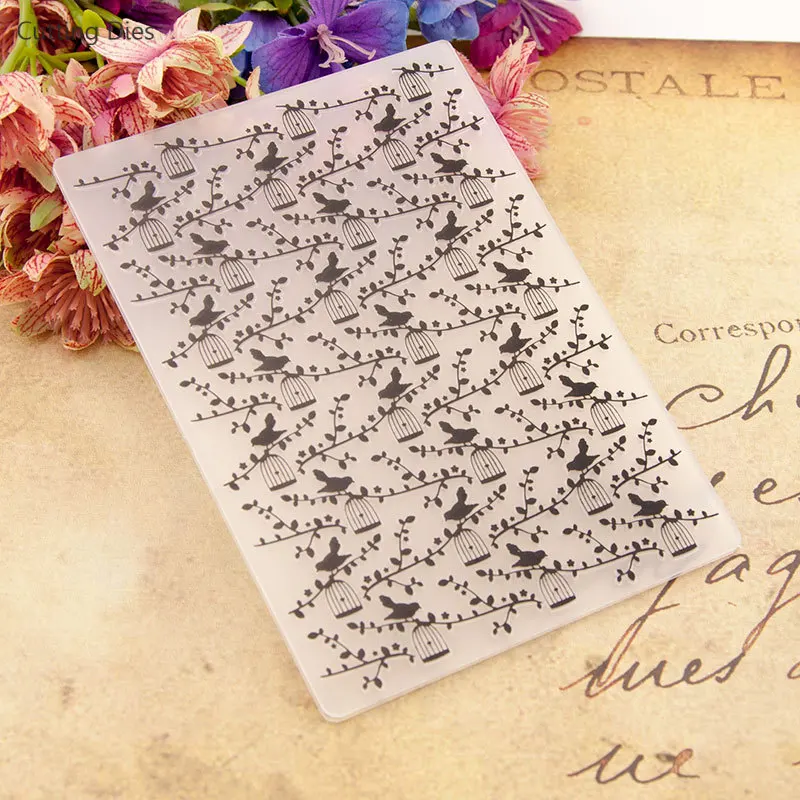 Cutting Dies
OSTALE
Correspon
ch
e
pag
ines
we